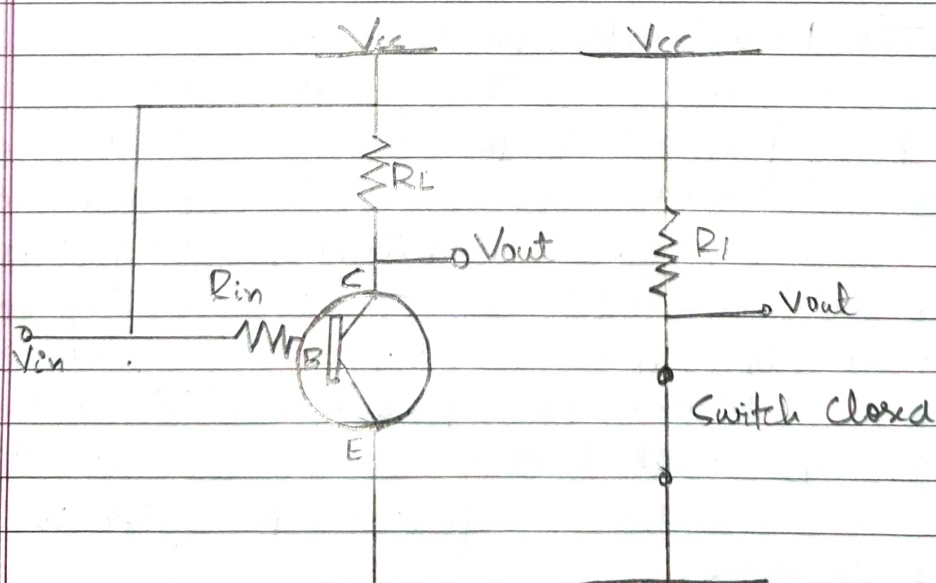 Vcc
Vcc
RL
R1
Vout
C
Rin
Vout
Vin
B
Switch Closed
E